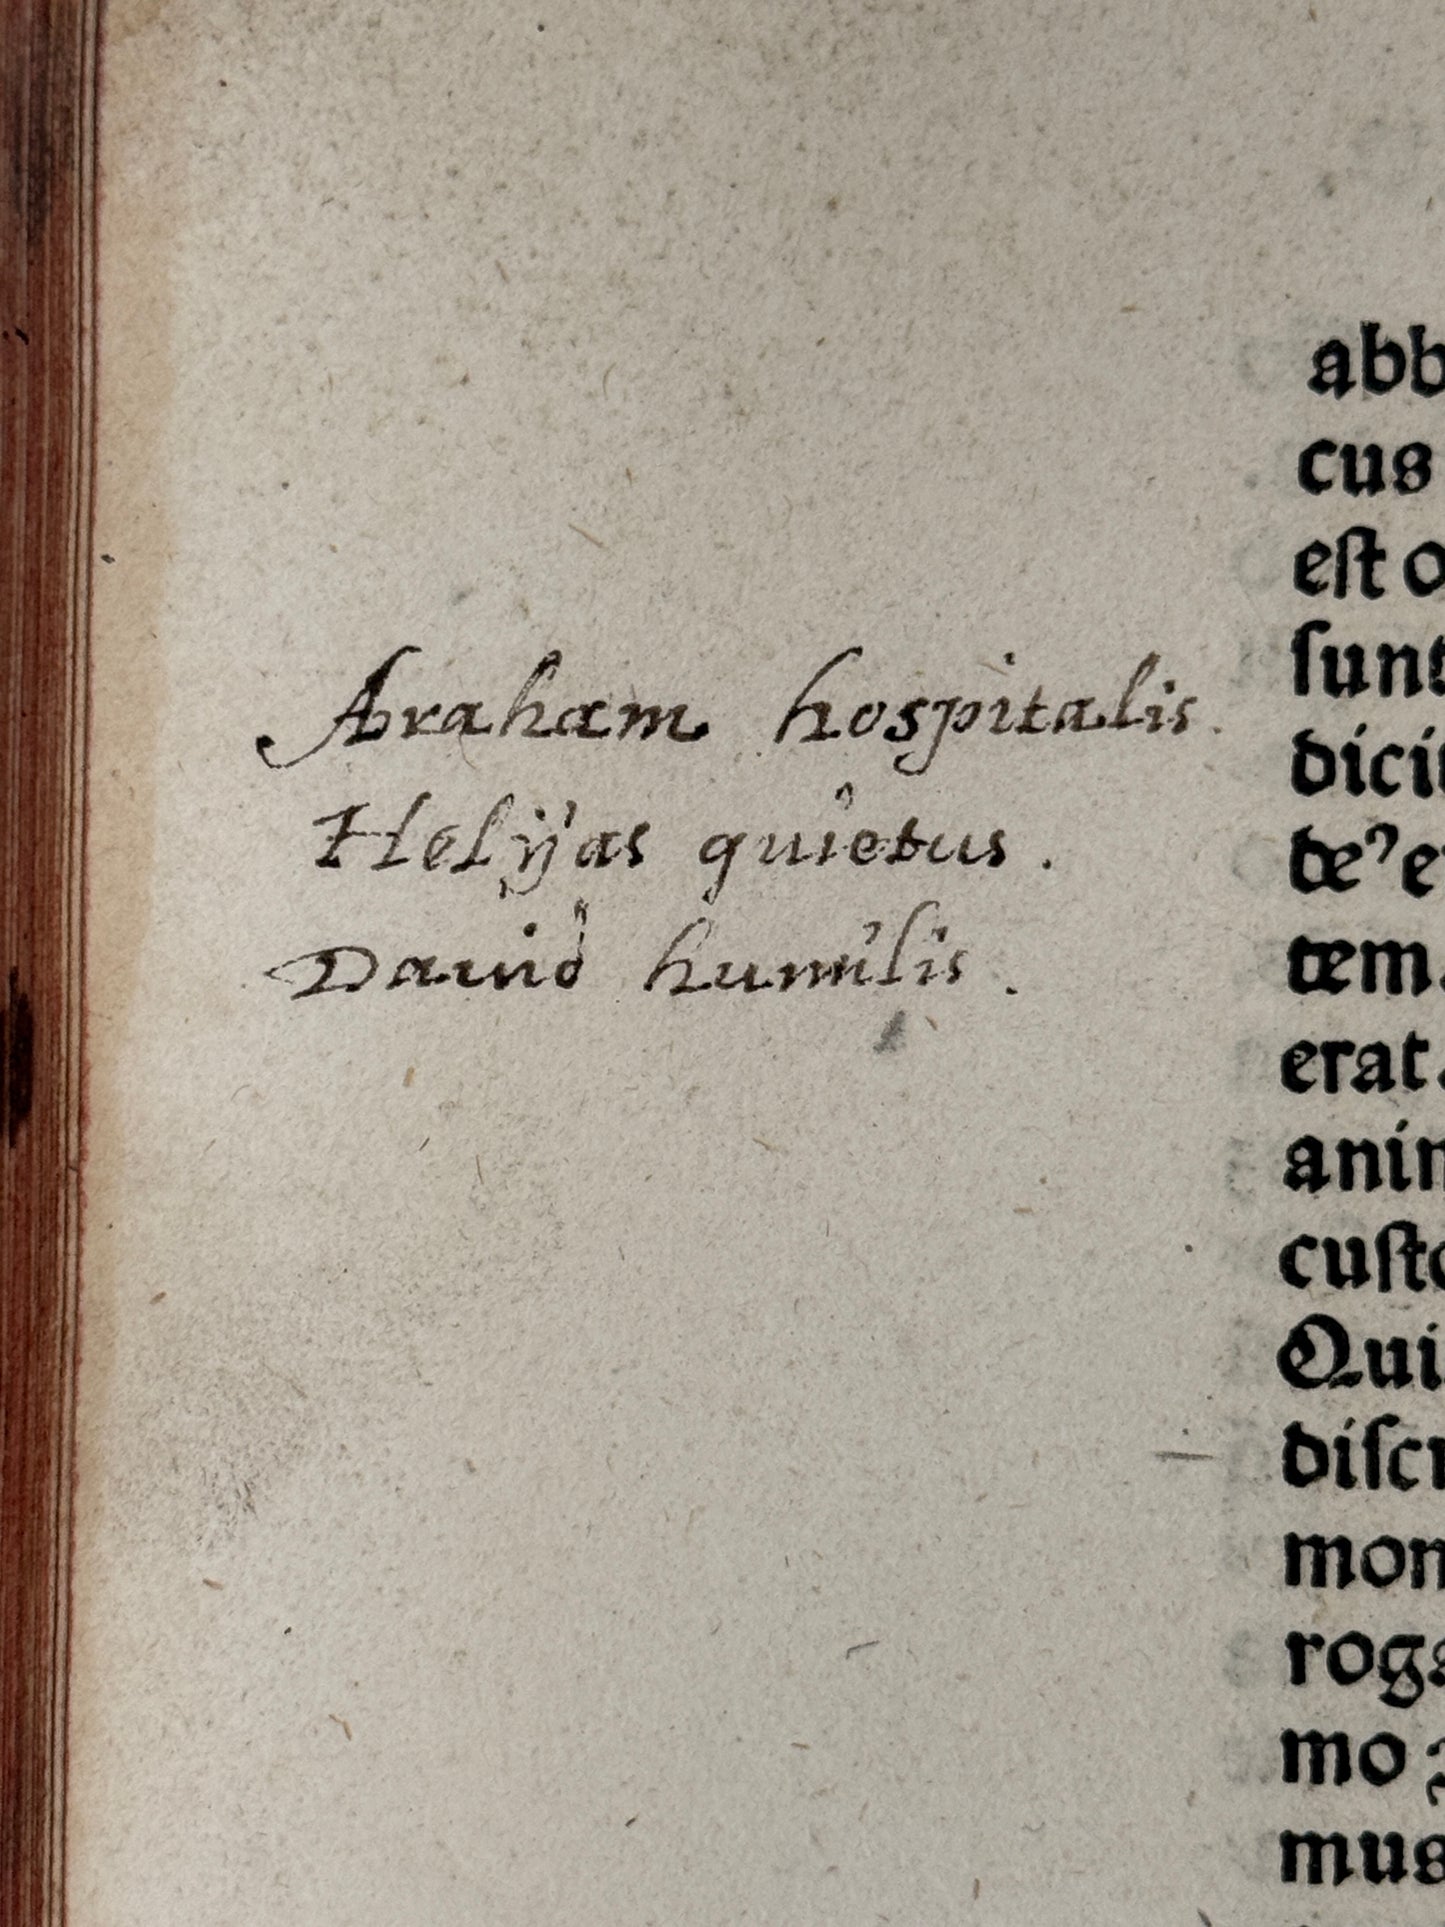 Abraham hospitalis.
Helÿas quietus.
Dauid humilis.
abb
cus
eſt o
ſunt
dici
de⁹ e
tem.
erat.
anim
cuſto
Qui
diſcr
mon
roga
mo
mus